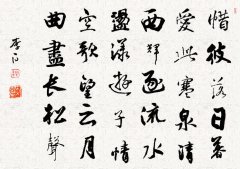 惜彼落日暮
愛此寒泉清
西輝逐流水
蕩漾遊子情
空歌望云月
曲盡长松聲
李白